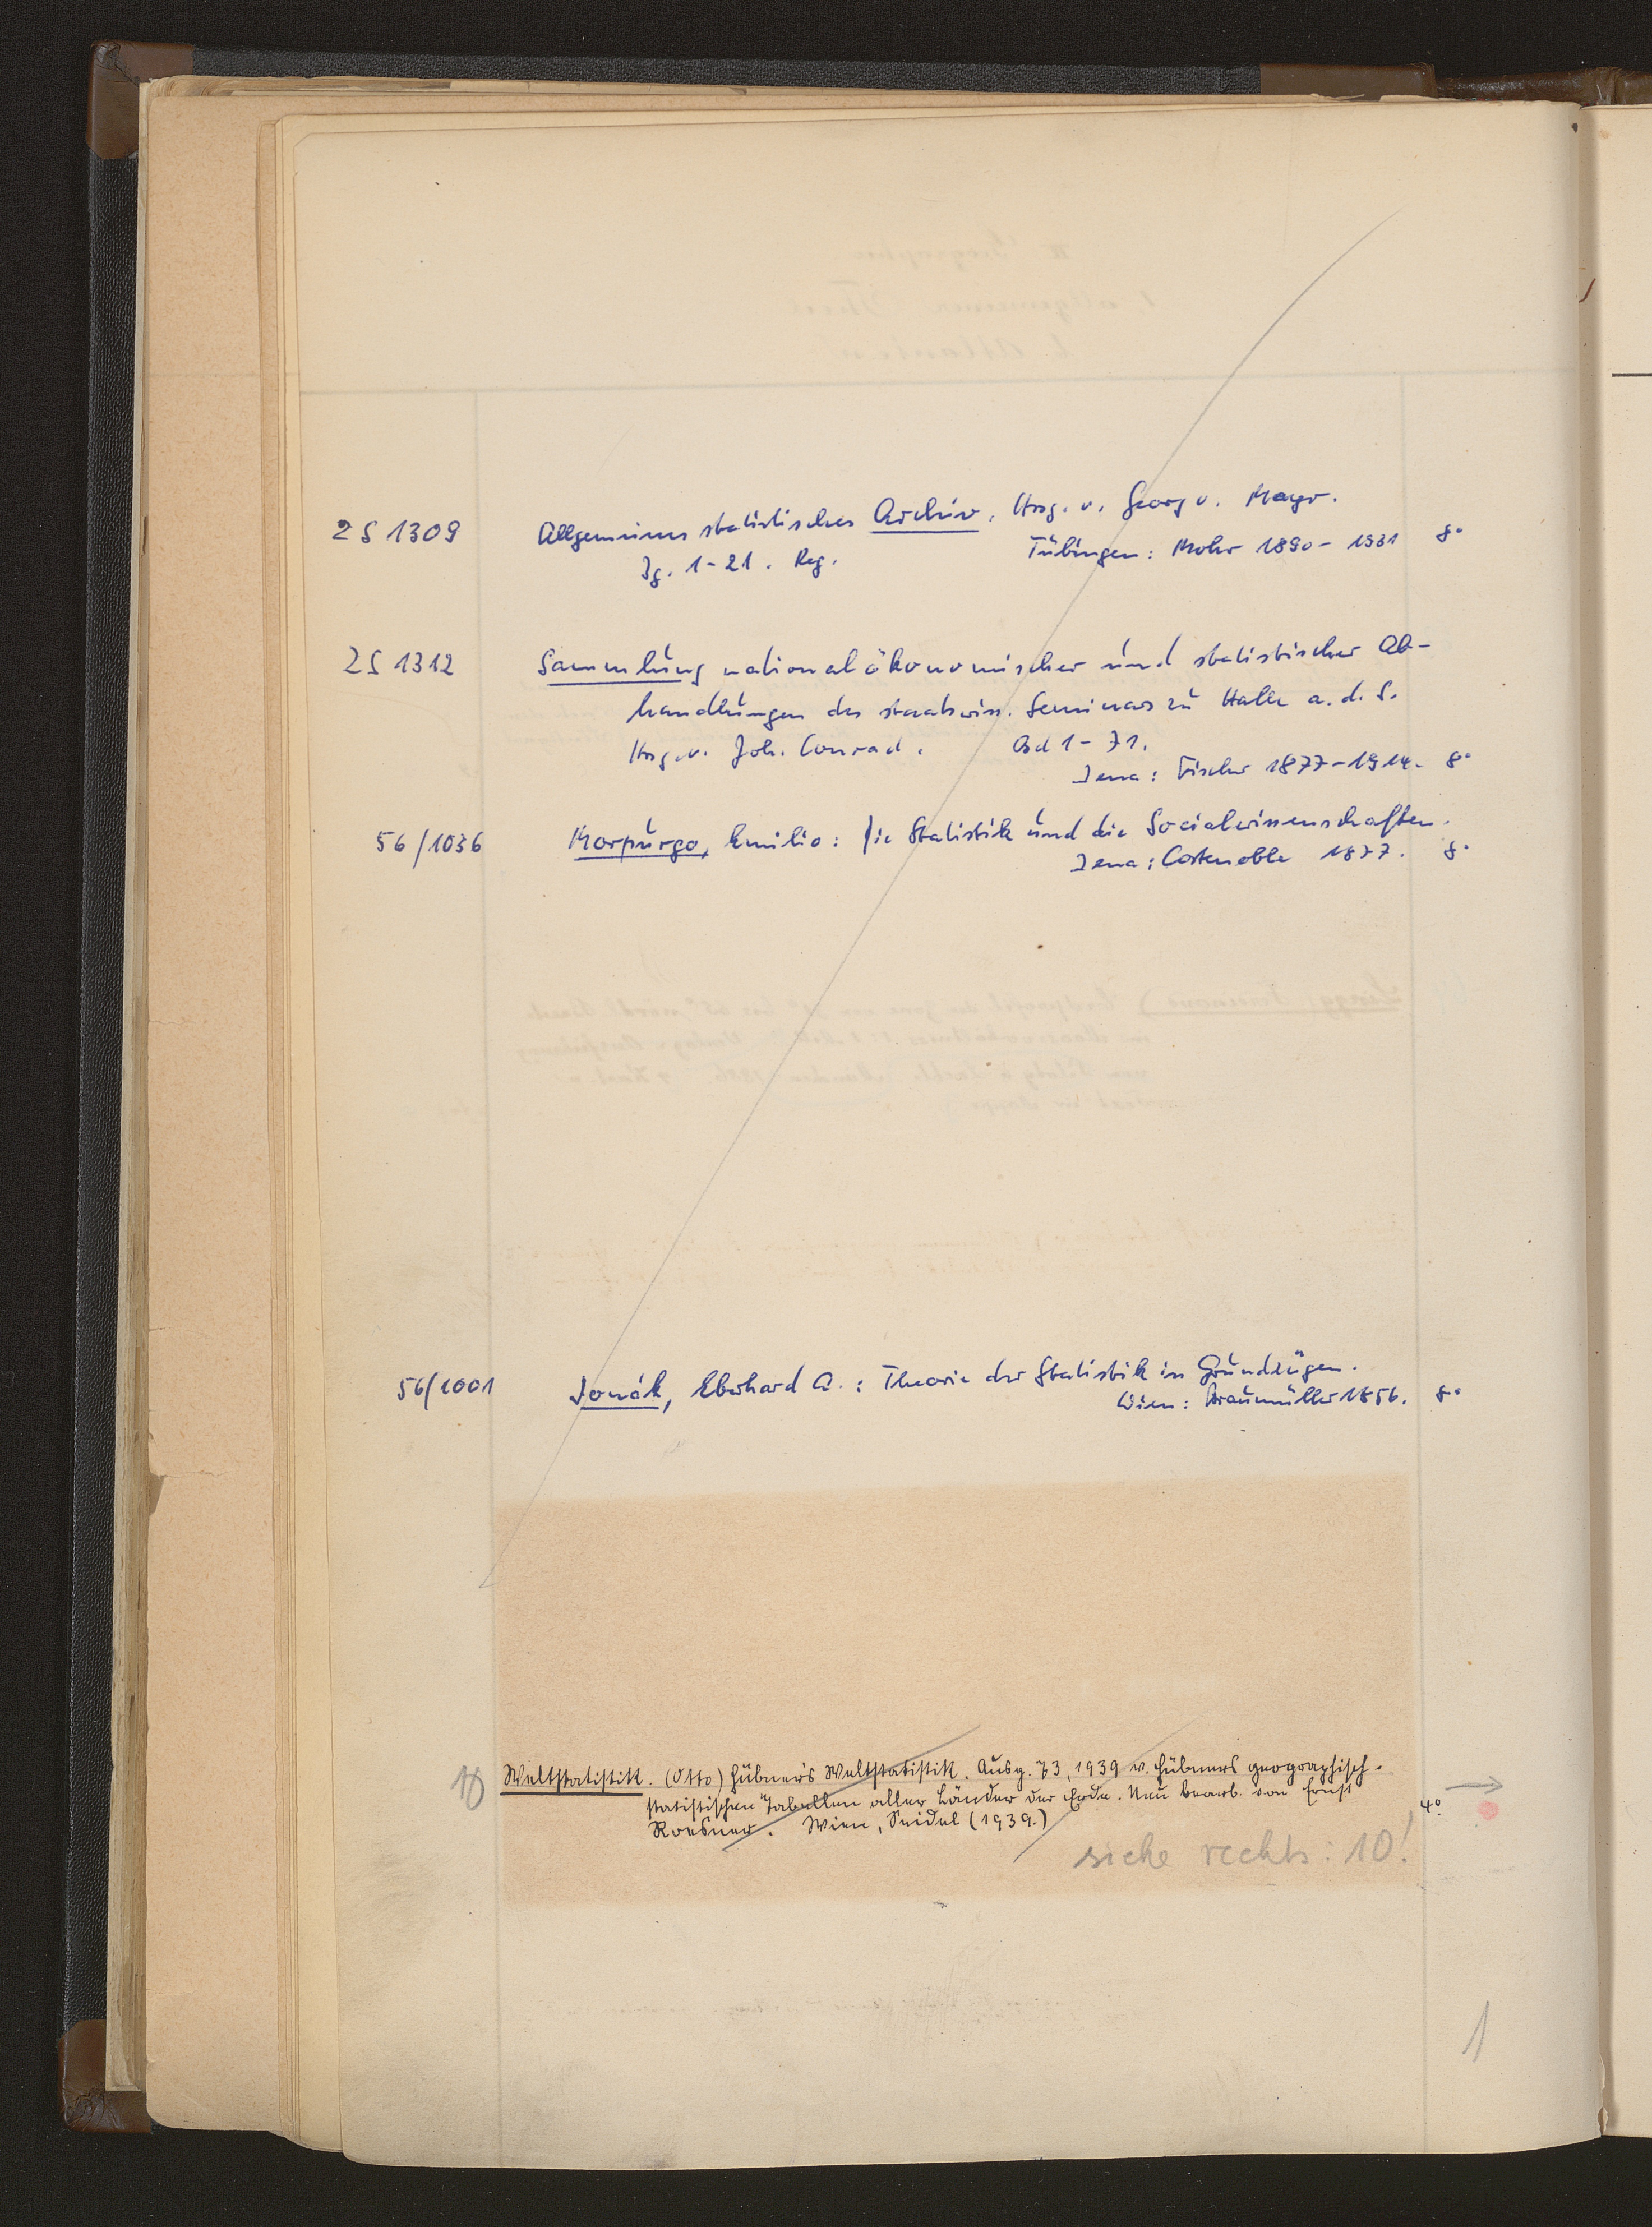 ZS 1309 Allgemeines statistisches Archiv. Hrsg. v. Georg v. Mayr.
Jg. 1-21. Reg. Tübingen: Mohr 1890-1931 8°
ZS 1312 Sammlung nationalökonomischer und statistischer Ab-
handlungen des staatswiss. Seminars zu Halle a.d.S.
Hrsg. v. Joh. Conrad. Bd 1-71.
Jena: Fischer 1877-1914. 8°
56/1036 Morpurgo, Emilio: Die Statistik und die Socialwissenschaften.
Jena: Costenoble 1877. 8°
56/1001 Jonák, Eberhard A.: Theorie der Statistik in Grundzügen.
Wien: Braumüller 1856. 8°
Weltstatistik. (Otto) Hübner's Weltstatistik. Ausg. 73, 1939 v. Hübners geographisch-
statistischen Tabellen aller Länder der Erde. Neu bearb. von Ernst
Roesner. Wien, Seidel (1939.) 4°
siehe rechts: 10!
1